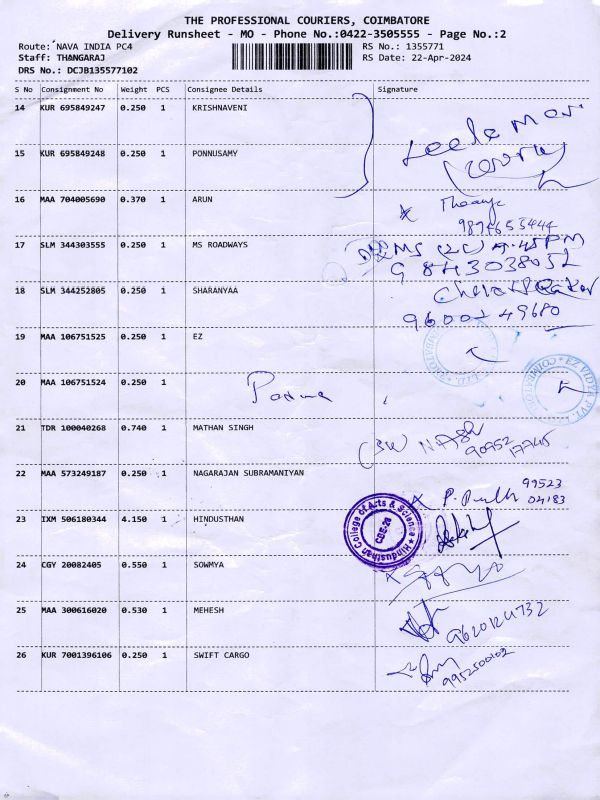 THE PROFESSIONAL COURIERS, COIMBATORE
Delivery Runsheet - MO - Phone No.:0422-3505555 - Page No.:2
Route: NAVA INDIA PC4 RS No.: 1355771
Staff: THANGARAJ RS Date: 22-Apr-2024
DRS No.: DCJB135577102
S No Consignment No Weight PCS Consignee Details Signature
14 KUR 695849247 0.250 1 KRISHNAVENI
15 KUR 695849248 0.250 1 PONNUSAMY
16 MAA 704005690 0.370 1 ARUN
9894655444
17 SLM 344303555 0.250 1 MS ROADWAYS
9843038052
18 SLM 344252805 0.250 1 SHARANYAA
9600249680
19 MAA 106751525 0.250 1 EZ
20 MAA 106751524 0.250 1 Padma
21 TDR 100040268 0.740 1 MATHAN SINGH
90952 17745
22 MAA 573249187 0.250 1 NAGARAJAN SUBRAMANIYAN
99523
04183
23 IXM 506180344 4.150 1 HINDUSTHAN
Hindusthan College of Arts & Science
CBE-28
24 CGY 20082405 0.550 1 SOWMYA
25 MAA 300616020 0.530 1 MEHESH
26 KUR 7001396106 0.250 1 SWIFT CARGO
9952500102